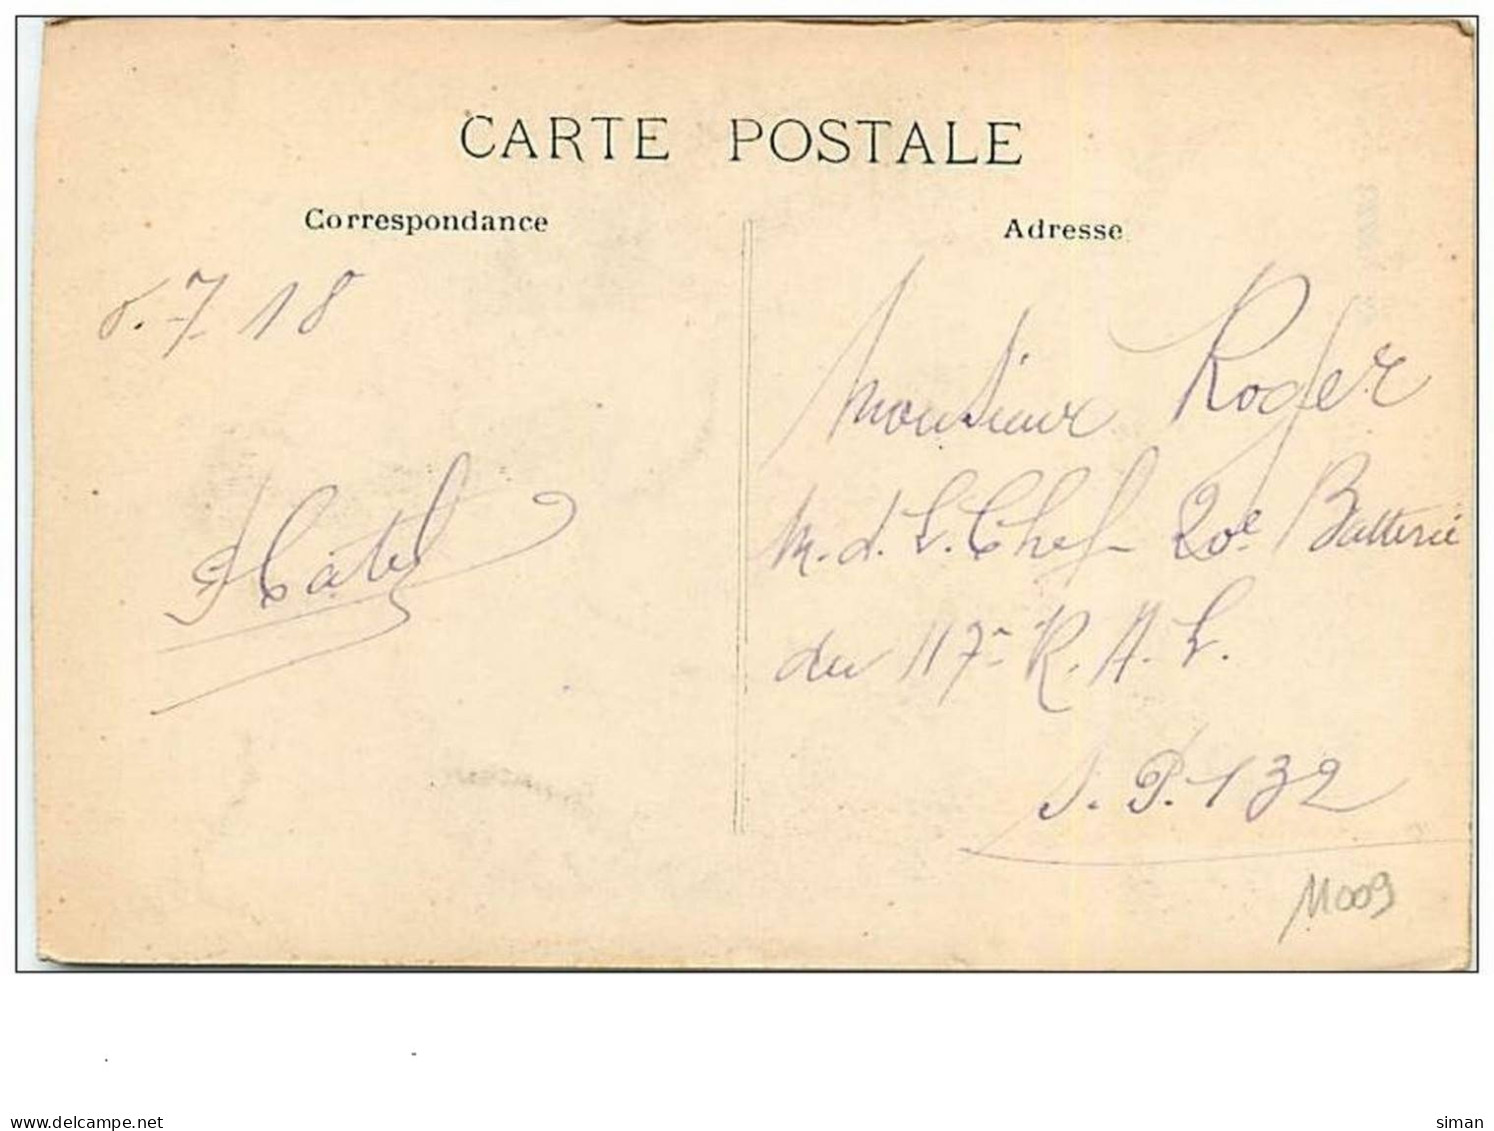 CARTE POSTALE
Correspondance
Adresse
7 18
Monsieur Roger
M. d. L. Chef 20e Batterie
du 117e R. A. L.
S. P. 132
11009
delcampe.net
siman